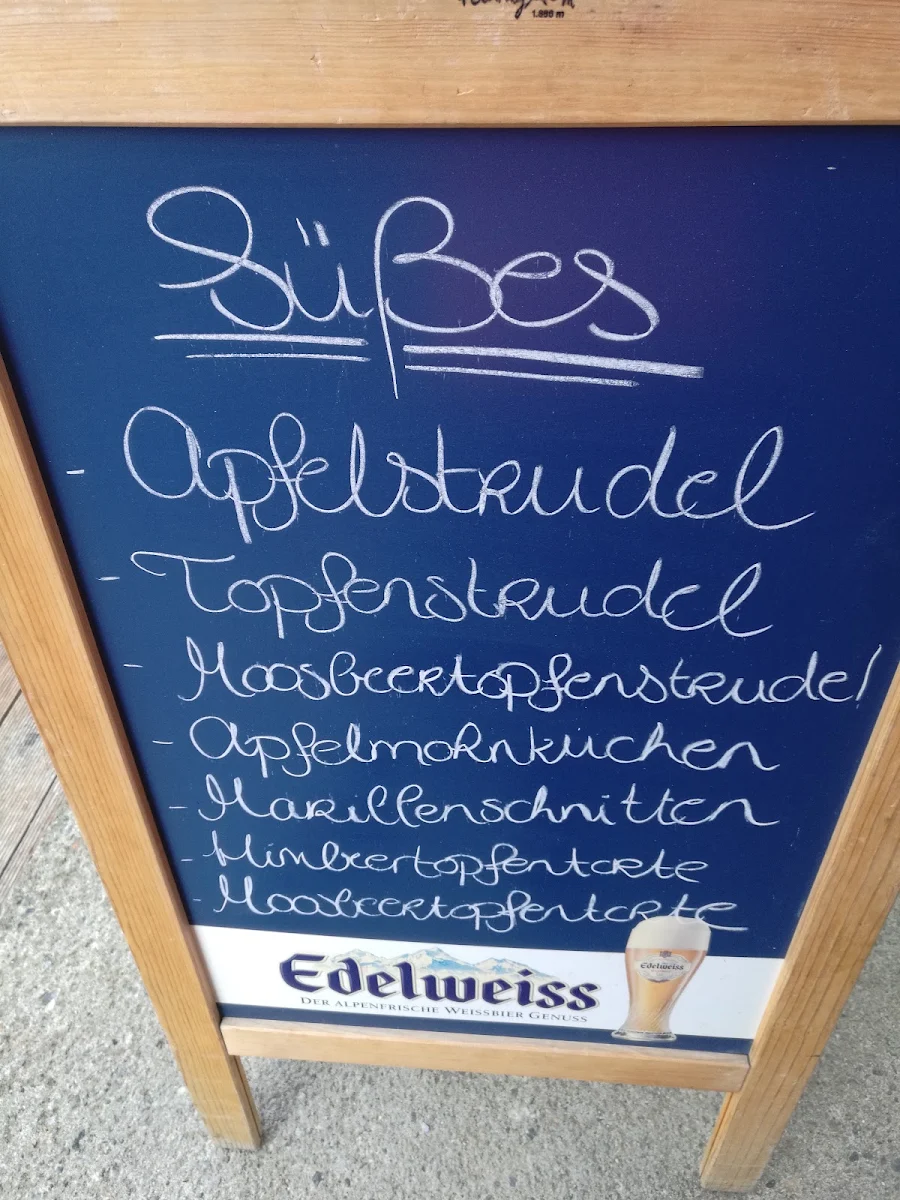 1.890 m
Süßes
- Apfelstrudel
- Topfenstrudel
- Moosbeertopfenstrudel
- Apfelmohnkuchen
- Marillenschnitten
- Himbeertopfentorte
- Moosbeertopfentorte
Edelweiss
DER ALPENFRISCHE WEISSBIER GENUSS
Edelweiss